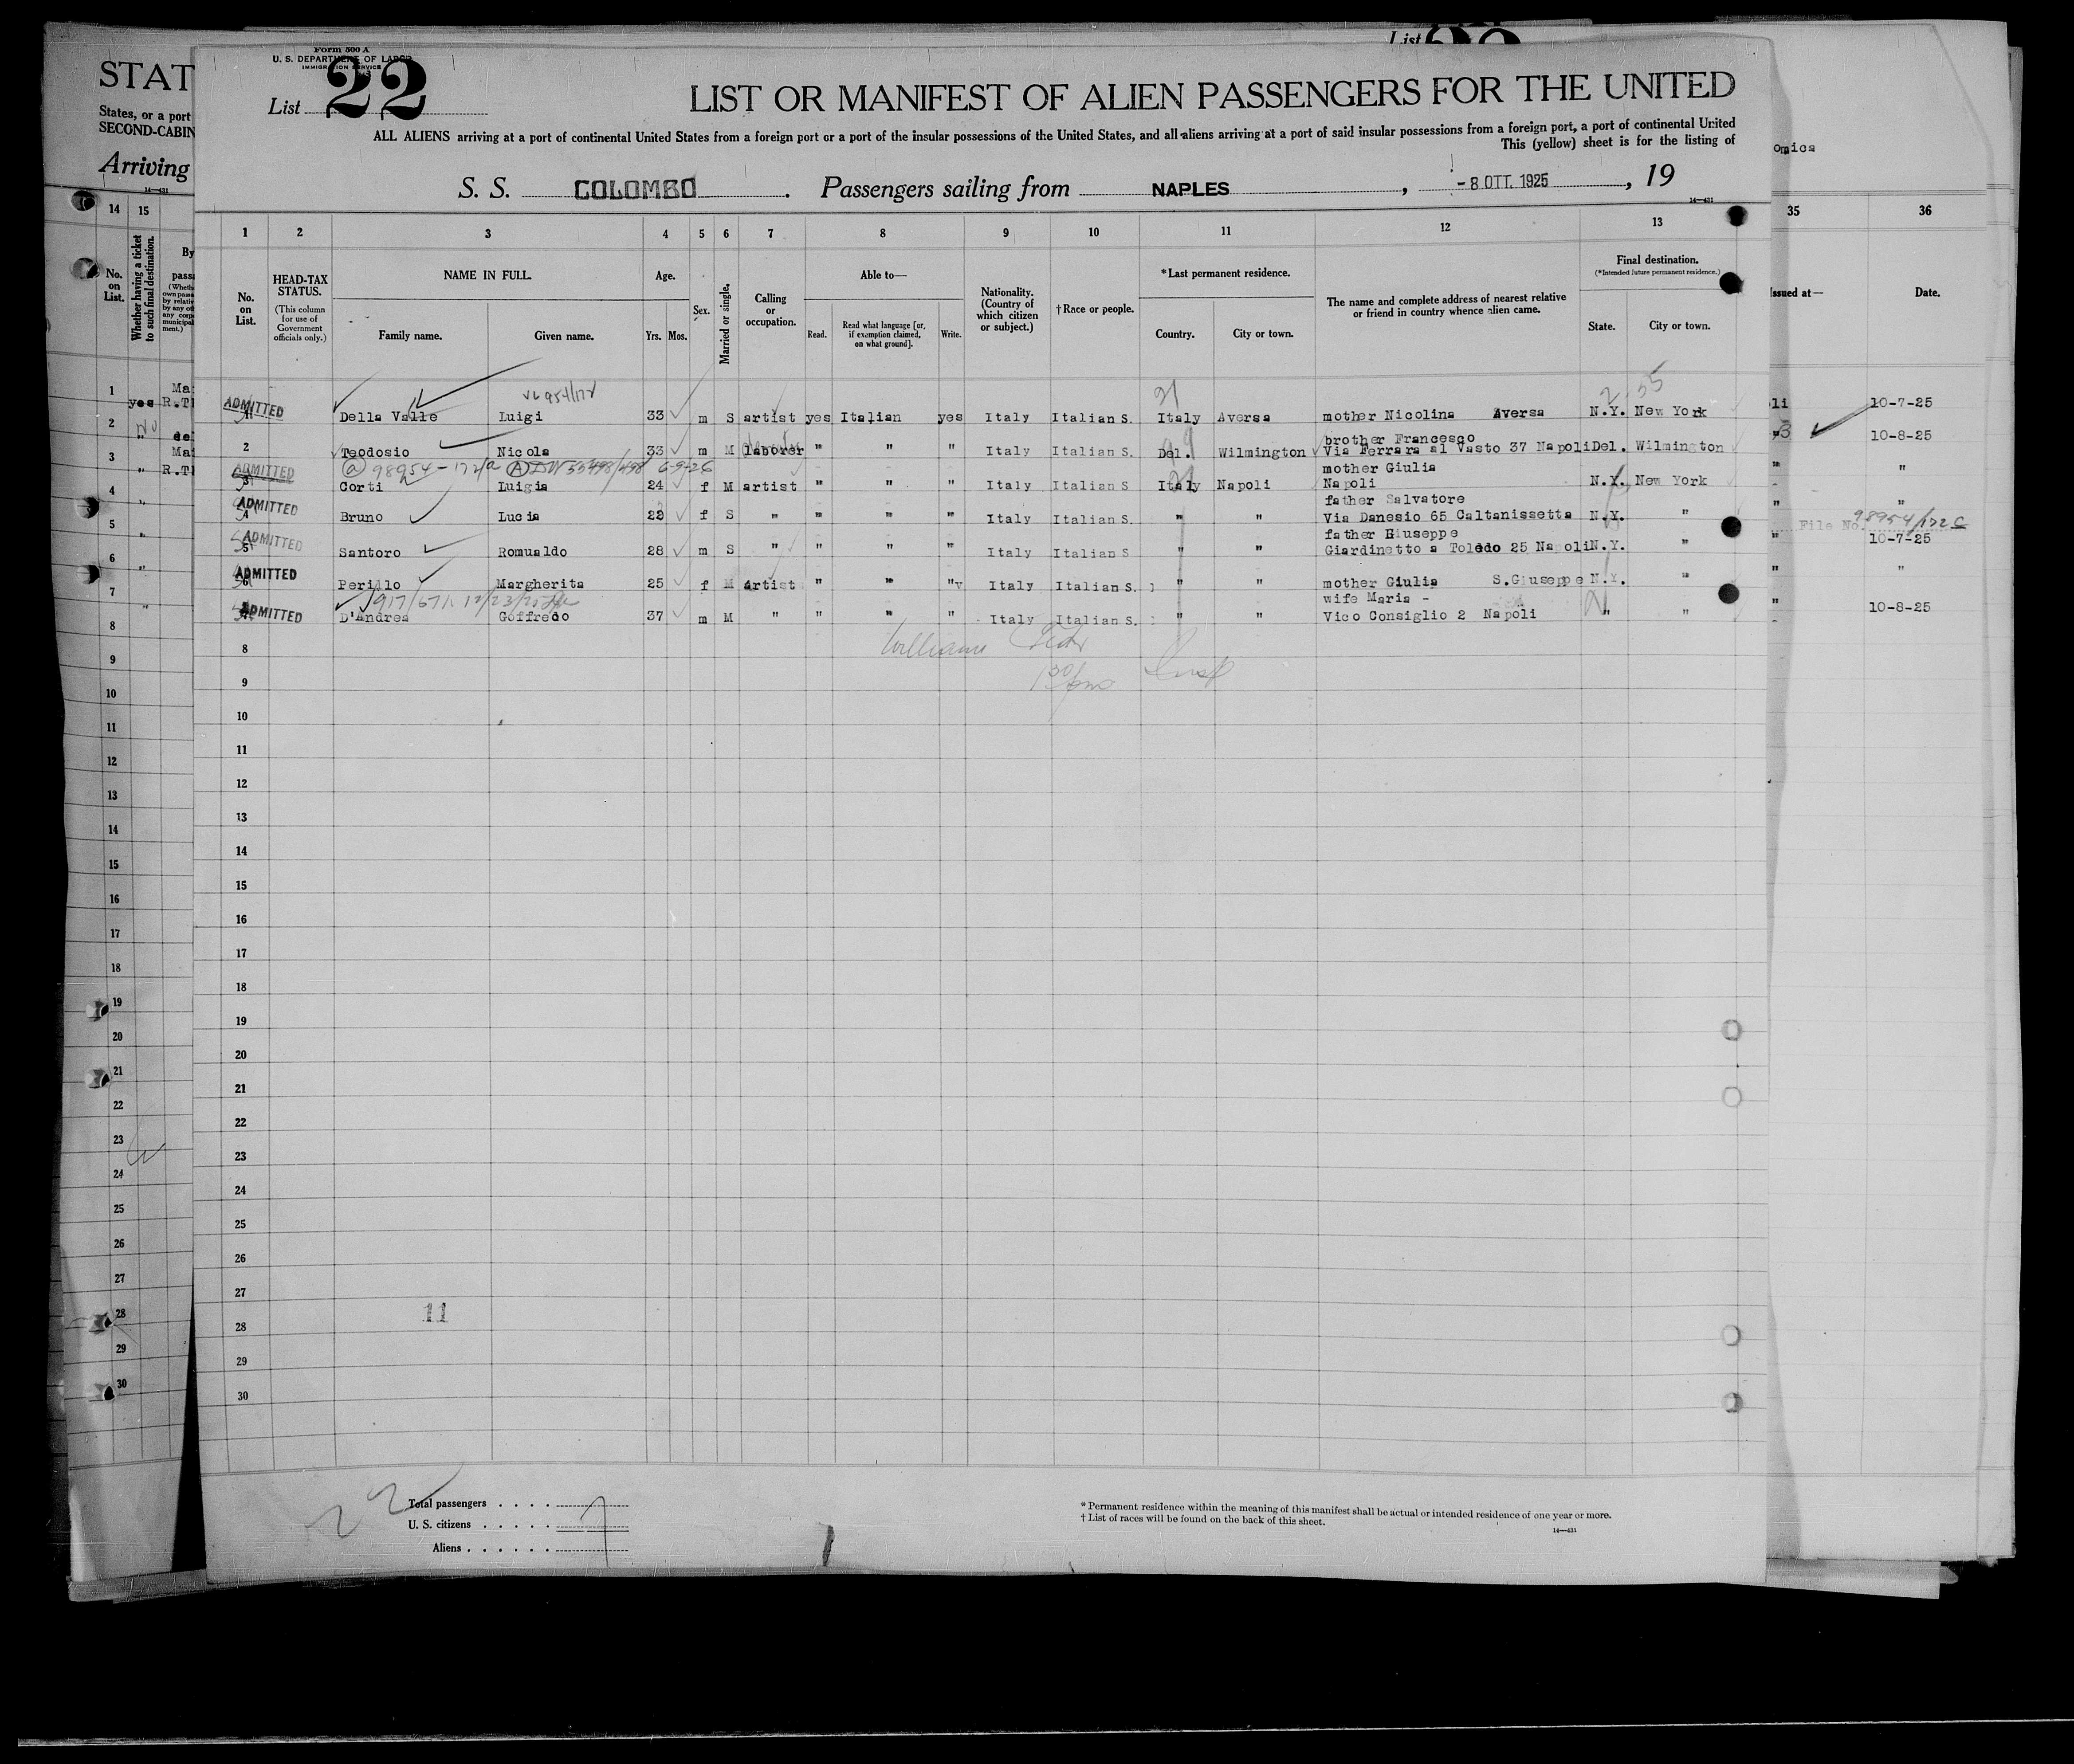 Form 500 A
U. S. DEPARTMENT OF LABOR
IMMIGRATION SERVICE
List 22
LIST OR MANIFEST OF ALIEN PASSENGERS FOR THE UNITED
ALL ALIENS arriving at a port of continental United States from a foreign port or a port of the insular possessions of the United States, and all aliens arriving at a port of said insular possessions from a foreign port, a port of continental United
This (yellow) sheet is for the listing of
S. S. COLOMBO. Passengers sailing from NAPLES, -8 OTT. 1925, 19
14—431
1 2 3 4 5 6 7 8 9 10 11 12 13
No. on List.
HEAD-TAX STATUS.
(This column for use of Government officials only.)
NAME IN FULL.
Family name. Given name.
Age.
Yrs. Mos.
Sex.
Married or single.
Calling or occupation.
Able to—
Read. Read what language [or, if exemption claimed, on what ground]. Write.
Nationality. (Country of which citizen or subject.)
†Race or people.
*Last permanent residence.
Country. City or town.
The name and complete address of nearest relative or friend in country whence alien came.
Final destination.
(*Intended future permanent residence.)
State. City or town.
ADMITTED Della Valle Luigi 33 m S artist yes Italian yes Italy Italian S. Italy Aversa mother Nicolina Aversa N.Y. New York
2 Teodosio Nicola 33 m M laborer " " " Italy Italian S. Del. Wilmington brother Francesco
Via Ferrara al Vasto 37 Napoli Del. Wilmington
98954-172/a 6-9-26
ADMITTED Corti Luigia 24 f M artist " " " Italy Italian S Italy Napoli mother Giulia
Napoli N.Y. New York
ADMITTED Bruno Lucia 28 f S " " " " Italy Italian S. " " father Salvatore
Via Danesio 65 Caltanissetta N.Y. "
ADMITTED Santoro Romualdo 28 m S " " " " Italy Italian S " " father Giuseppe
Giardinetto a Toledo 25 Napoli N.Y. "
ADMITTED Perillo Margherita 25 f M artist " " " Italy Italian S. " " mother Giulia S.Giuseppe N.Y. "
ADMITTED D'Andrea Goffredo 37 m M " " " " Italy Italian S. " " wife Maria -
Vico Consiglio 2 Napoli " "
8
9
10
11
12
13
14
15
16
17
18
19
20
21
22
23
24
25
26
27
28
29
30
11
22
Total passengers . . . .
U. S. citizens . . . . .
Aliens . . . . . .
7
* Permanent residence within the meaning of this manifest shall be actual or intended residence of one year or more.
† List of races will be found on the back of this sheet.
14—431
STAT
States, or a port
SECOND-CABIN
Arriving
14—431
14 15
No. on List.
Whether having a ticket to such final destination.
By
1
yes R.T
2
3
" R.T
4
5
6
7
8
9
10
11
12
13
14
15
16
17
18
19
20
21
22
23
24
25
26
27
28
29
30
List
omica
35 36
Issued at— Date.
10-7-25
10-8-25
"
"
File No. 98954/172 C
10-7-25
"
10-8-25